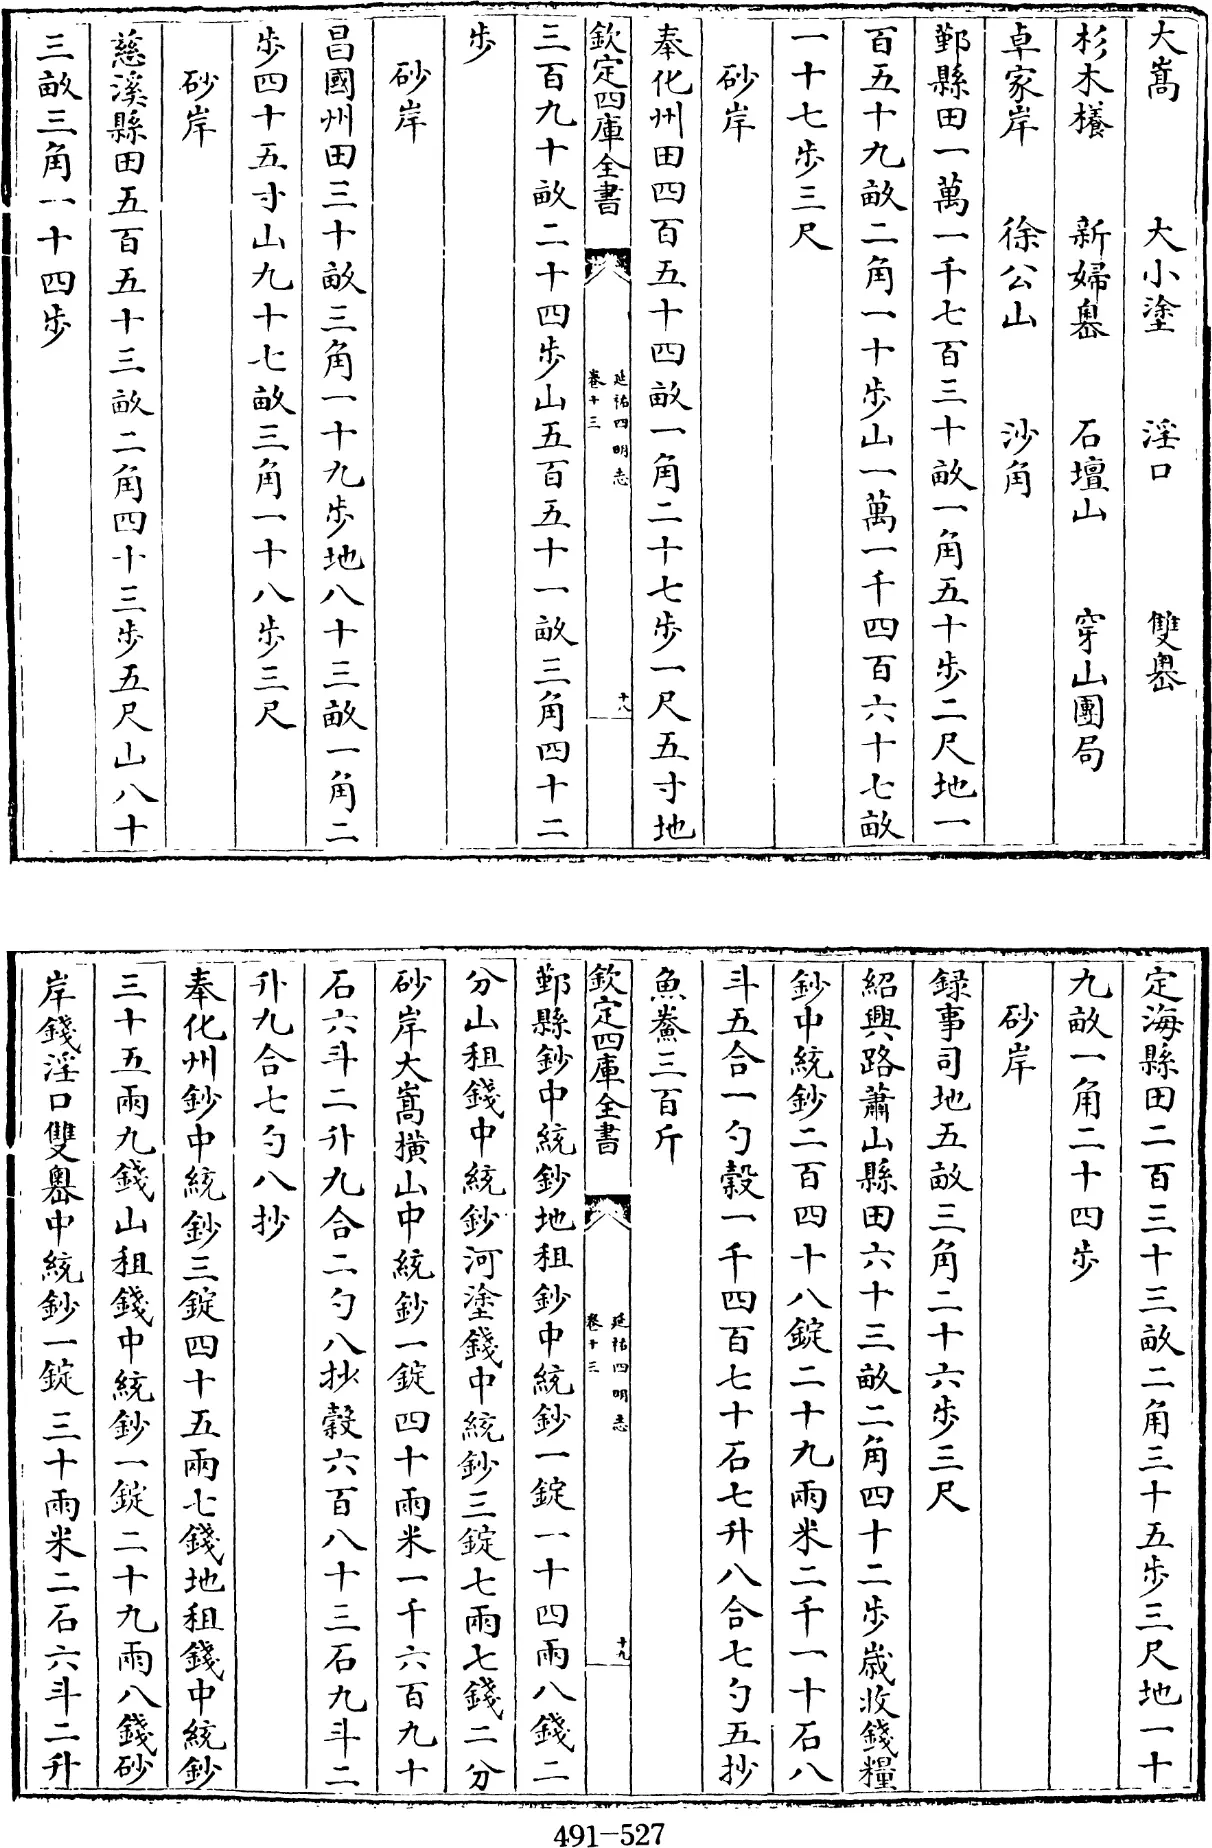 大嵩　大小塗　淫口　雙嶴
杉木橽　新婦嶴　石壇山　穿山團局
卓家岸　徐公山　沙角
鄞縣田一萬一千七百三十畝一角五十步二尺地一
百五十九畝二角一十步山一萬一千四百六十七畝
一十七步三尺
砂岸
奉化州田四百五十四畝一角二十七步一尺五寸地
欽定四庫全書
延祐四明志
卷十三
十八
三百九十畝二十四步山五百五十一畝三角四十二
步
砂岸
昌國州田三十畝三角一十九步地八十三畝一角二
步四十五寸山九十七畝三角一十八步三尺
砂岸
慈溪縣田五百五十三畝二角四十三步五尺山八十
三畝三角一十四步
定海縣田二百三十三畝二角三十五步三尺地一十
九畝一角二十四步
砂岸
録事司地五畝三角二十六步三尺
紹興路蕭山縣田六十三畝二角四十二步歳收錢糧
鈔中統鈔二百四十八錠二十九兩米二千一十石八
斗五合一勺穀一千四百七十石七升八合七勺五抄
魚鯗三百斤
欽定四庫全書
延祐四明志
卷十三
十九
鄞縣鈔中統鈔地租鈔中統鈔一錠一十四兩八錢二
分山租錢中統鈔河塗錢中統鈔三錠七兩七錢二分
砂岸大嵩横山中統鈔一錠四十兩米一千六百九十
石六斗二升九合二勺八抄穀六百八十三石九斗二
升九合七勺八抄
奉化州鈔中統鈔三錠四十五兩七錢地租錢中統鈔
三十五兩九錢山租錢中統鈔一錠二十九兩八錢砂
岸錢淫口雙嶴中統鈔一錠三十兩米二石六斗二升
491-527